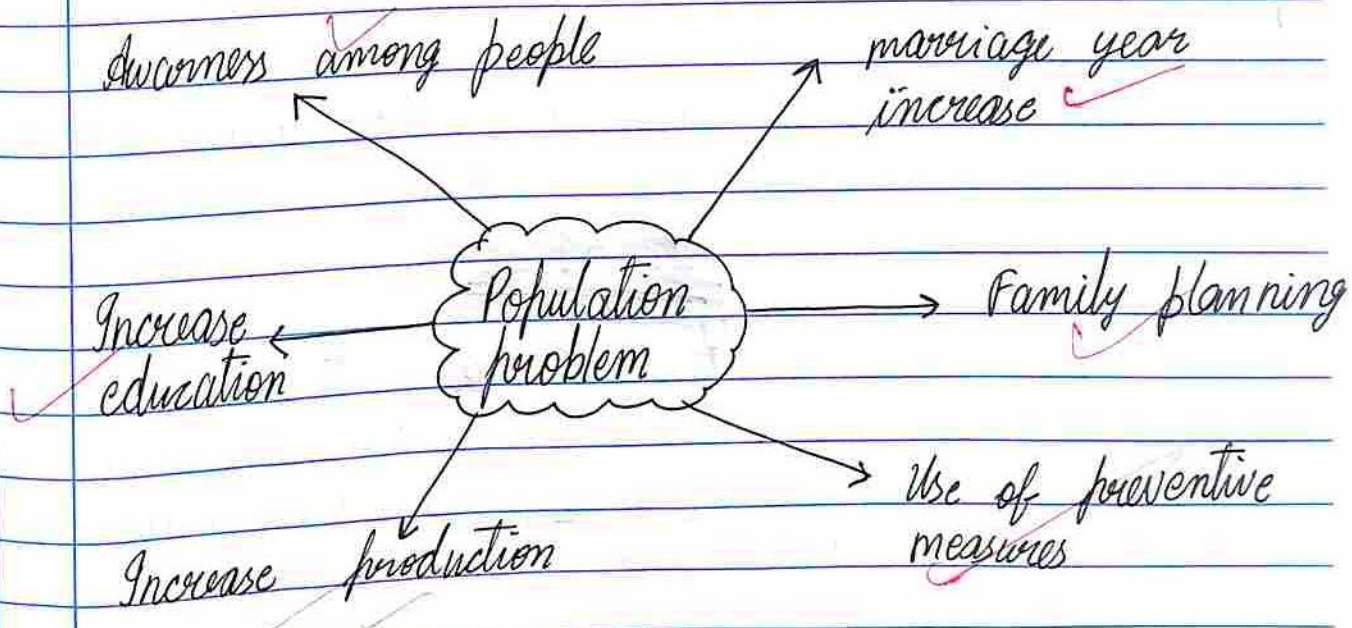 Awarness among people
marriage year
increase
Increase
education
Population
problem
Family planning
Increase production
Use of preventive
measures